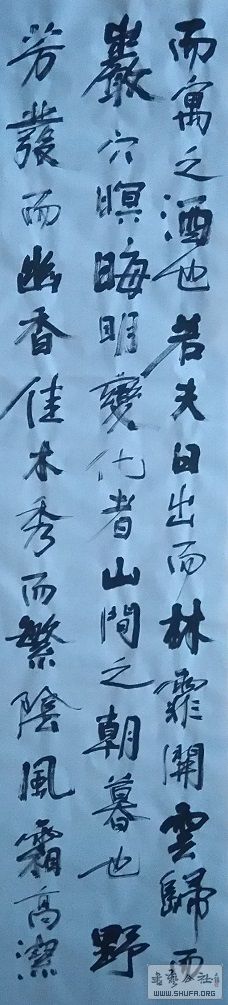 而寓之酒也若夫日出而林霏開雲歸而
巖穴暝晦明變化者山間之朝暮也野
芳發而幽香佳木秀而繁陰風霜高潔
書藝公社
WWW.SHUFA.ORG